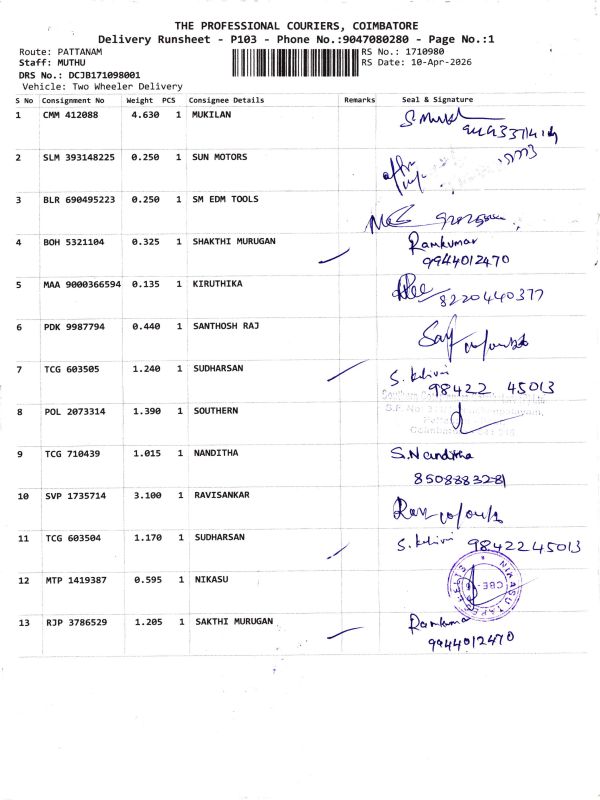 THE PROFESSIONAL COURIERS, COIMBATORE
Delivery Runsheet - P103 - Phone No.:9047080280 - Page No.:1
Route: PATTANAM RS No.: 1710980
Staff: MUTHU RS Date: 10-Apr-2026
DRS No.: DCJB171098001
Vehicle: Two Wheeler Delivery
S No Consignment No Weight PCS Consignee Details Remarks Seal & Signature
1 CMM 412088 4.630 1 MUKILAN
2 SLM 393148225 0.250 1 SUN MOTORS
3 BLR 690495223 0.250 1 SM EDM TOOLS
4 BOH 5321104 0.325 1 SHAKTHI MURUGAN Ramkumar
9944012470
5 MAA 9000366594 0.135 1 KIRUTHIKA
8220440377
6 PDK 9987794 0.440 1 SANTHOSH RAJ
7 TCG 603505 1.240 1 SUDHARSAN S.
98422 45013
8 POL 2073314 1.390 1 SOUTHERN
9 TCG 710439 1.015 1 NANDITHA S.Nanditha
8508883281
10 SVP 1735714 3.100 1 RAVISANKAR
11 TCG 603504 1.170 1 SUDHARSAN S. 9842245013
12 MTP 1419387 0.595 1 NIKASU
13 RJP 3786529 1.205 1 SAKTHI MURUGAN
9944012470